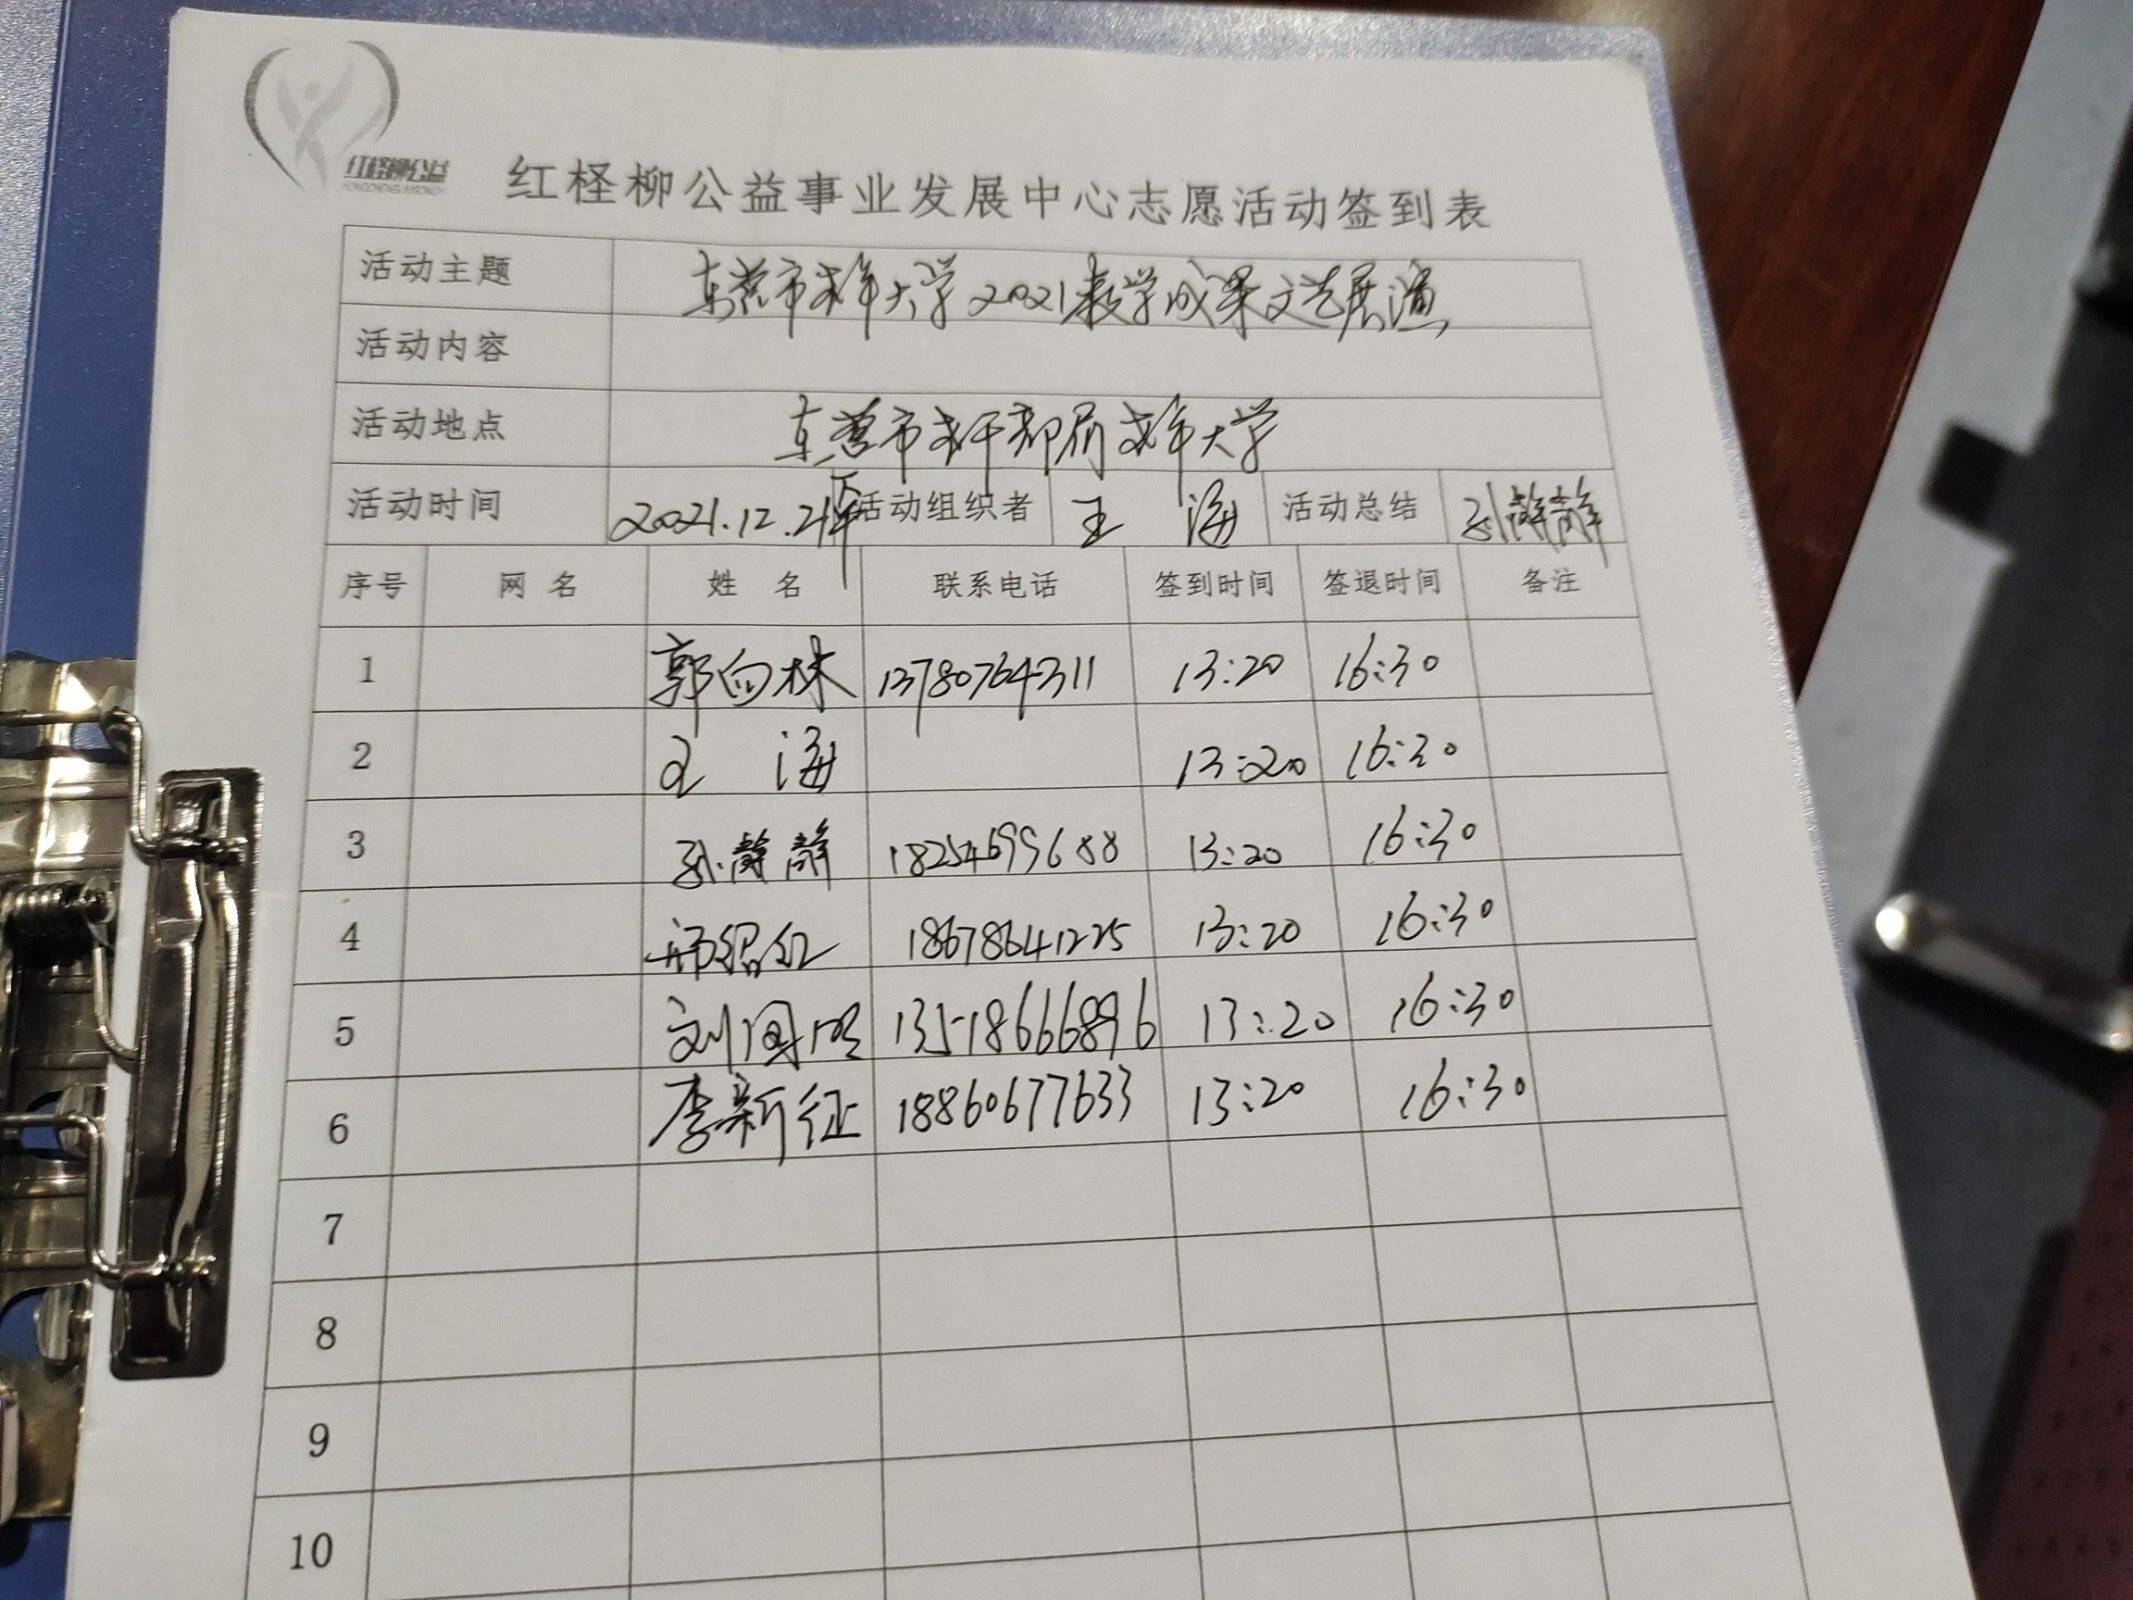 红柽柳公益
红柽柳公益事业发展中心志愿活动签到表
活动主题 东营市老年大学2021教学成果文艺展演
活动内容
活动地点 东营市老干部局老年大学
活动时间 2021.12.21下午 活动组织者 王 海 活动总结 孙静静
序号 网 名 姓 名 联系电话 签到时间 签退时间 备注
1 郭向林 13780764311 13:20 16:30
2 王 海 13:20 16:30
3 孙静静 18254699688 13:20 16:30
4 18678641225 13:20 16:30
5 刘国明 13518666896 13:20 16:30
6 李新征 18860677633 13:20 16:30
7
8
9
10